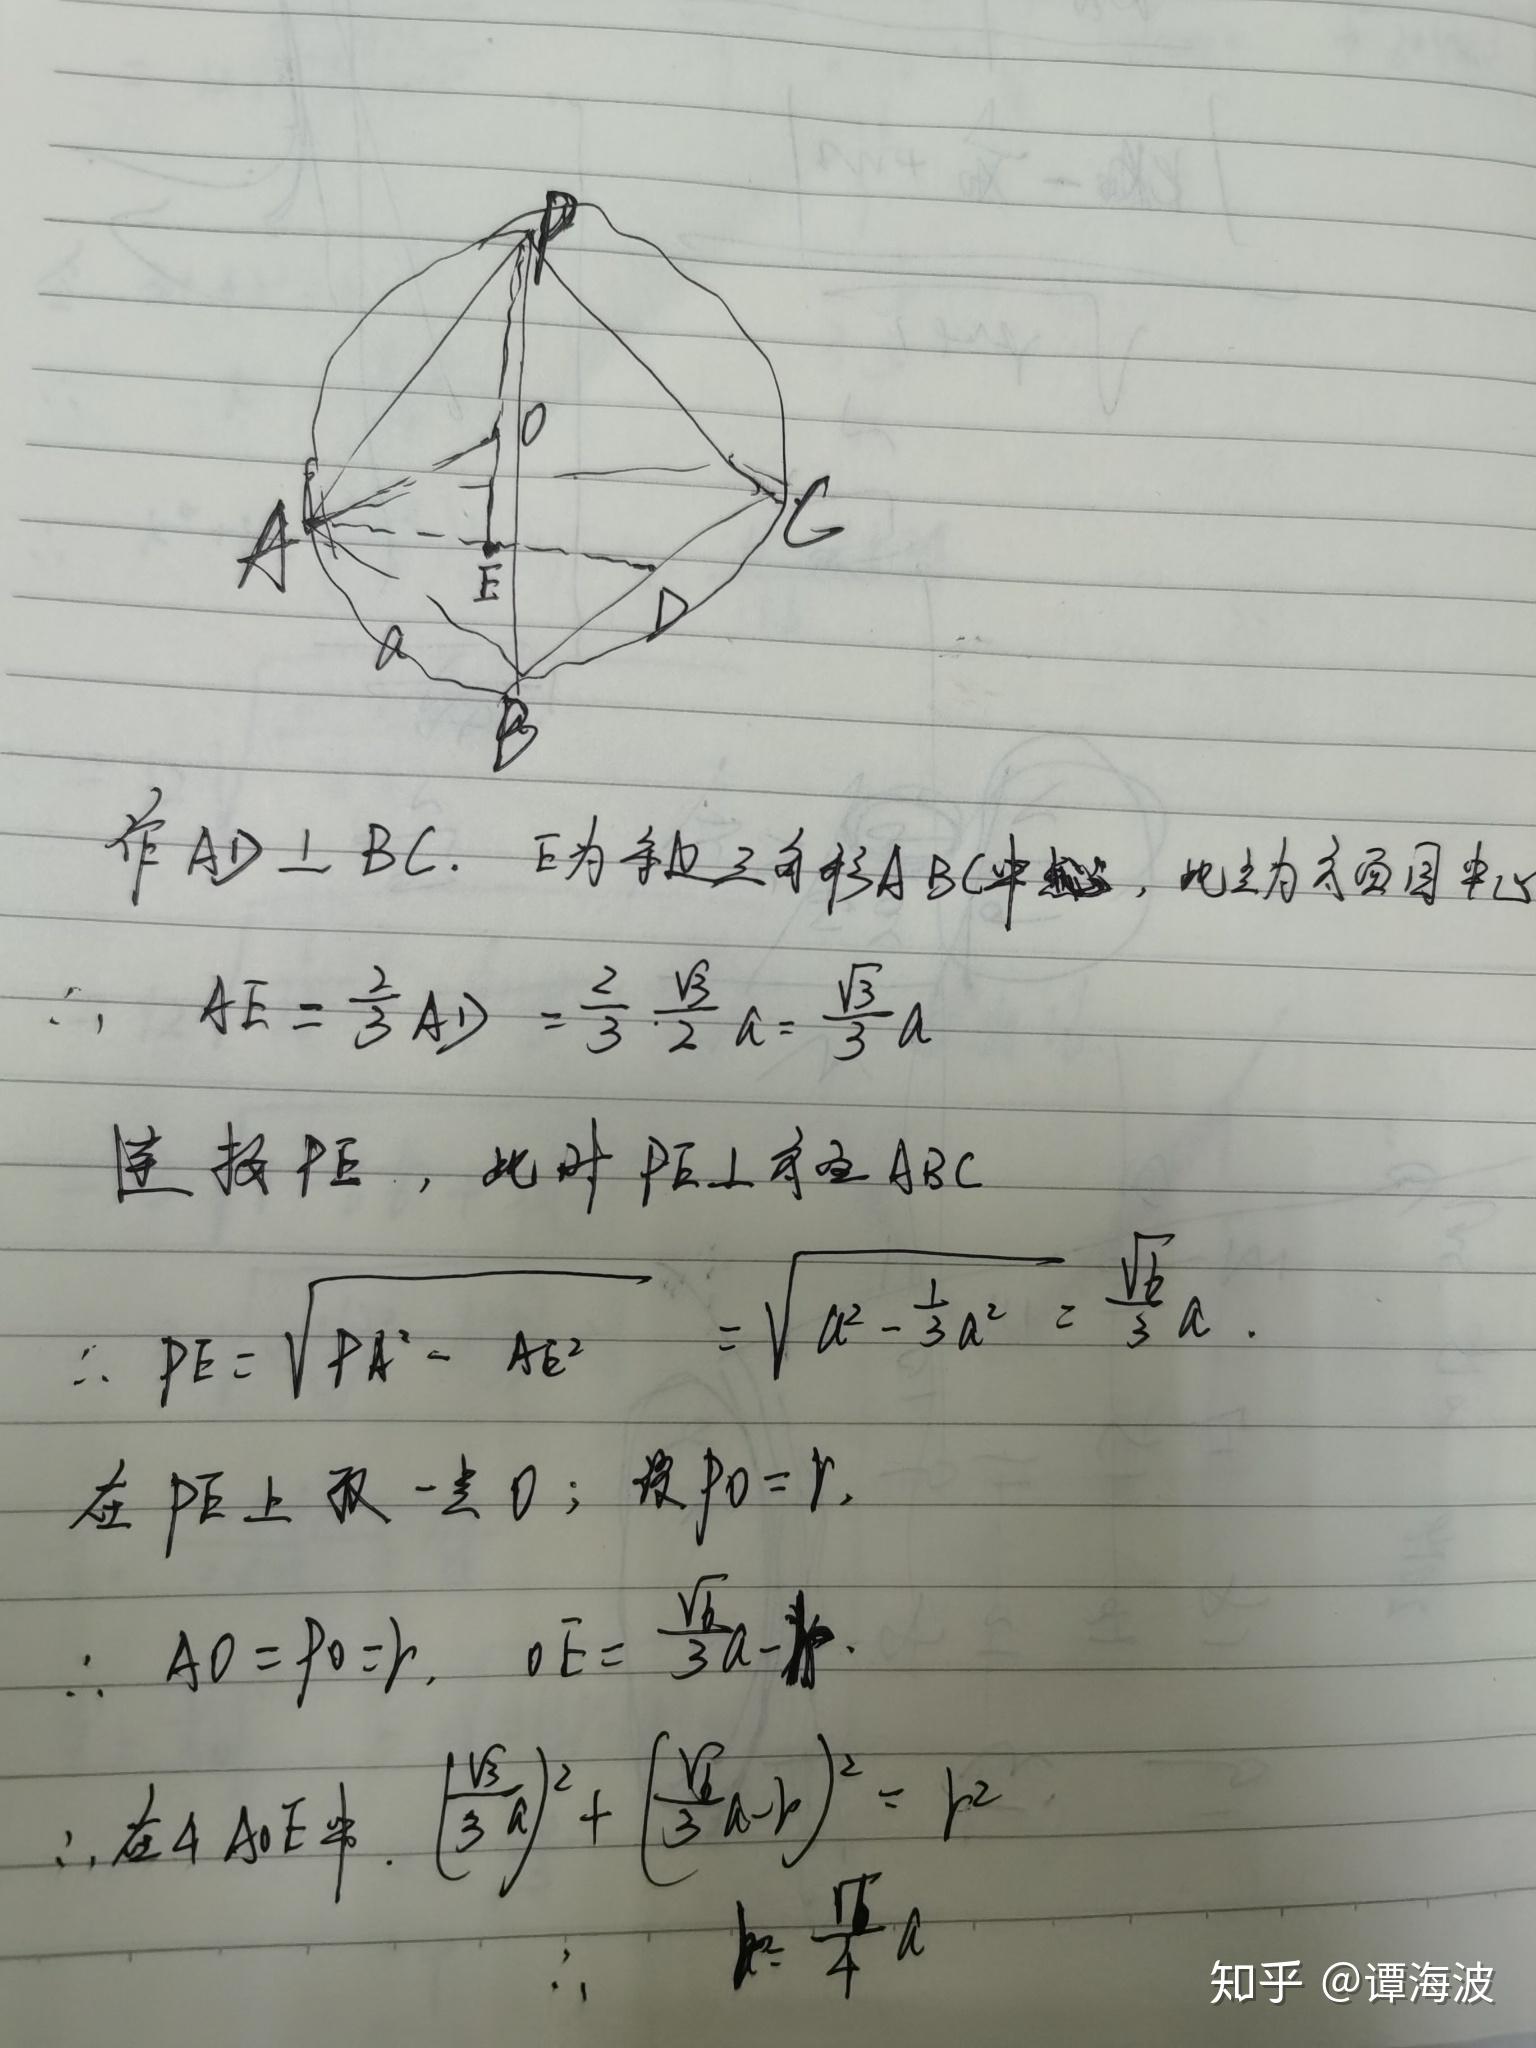 P
O
A
C
E
D
a
B
作AD⊥BC. E为等边三角形ABC中心, 此点为方面图中心
∴ AE = 2/3 AD = 2/3 · √3/2 a = √3/3 a
连接PE, 此时PE⊥平面ABC
∴ PE = √(PA² - AE²) = √(a² - 1/3 a²) = √6/3 a.
在PE上取一点O; 设PO = r,
∴ AO = PO = r, OE = √6/3 a - r.
∴ 在△AOE中. (√3/3 a)² + (√6/3 a - r)² = r²
∴ r = √6/4 a
知乎 @谭海波